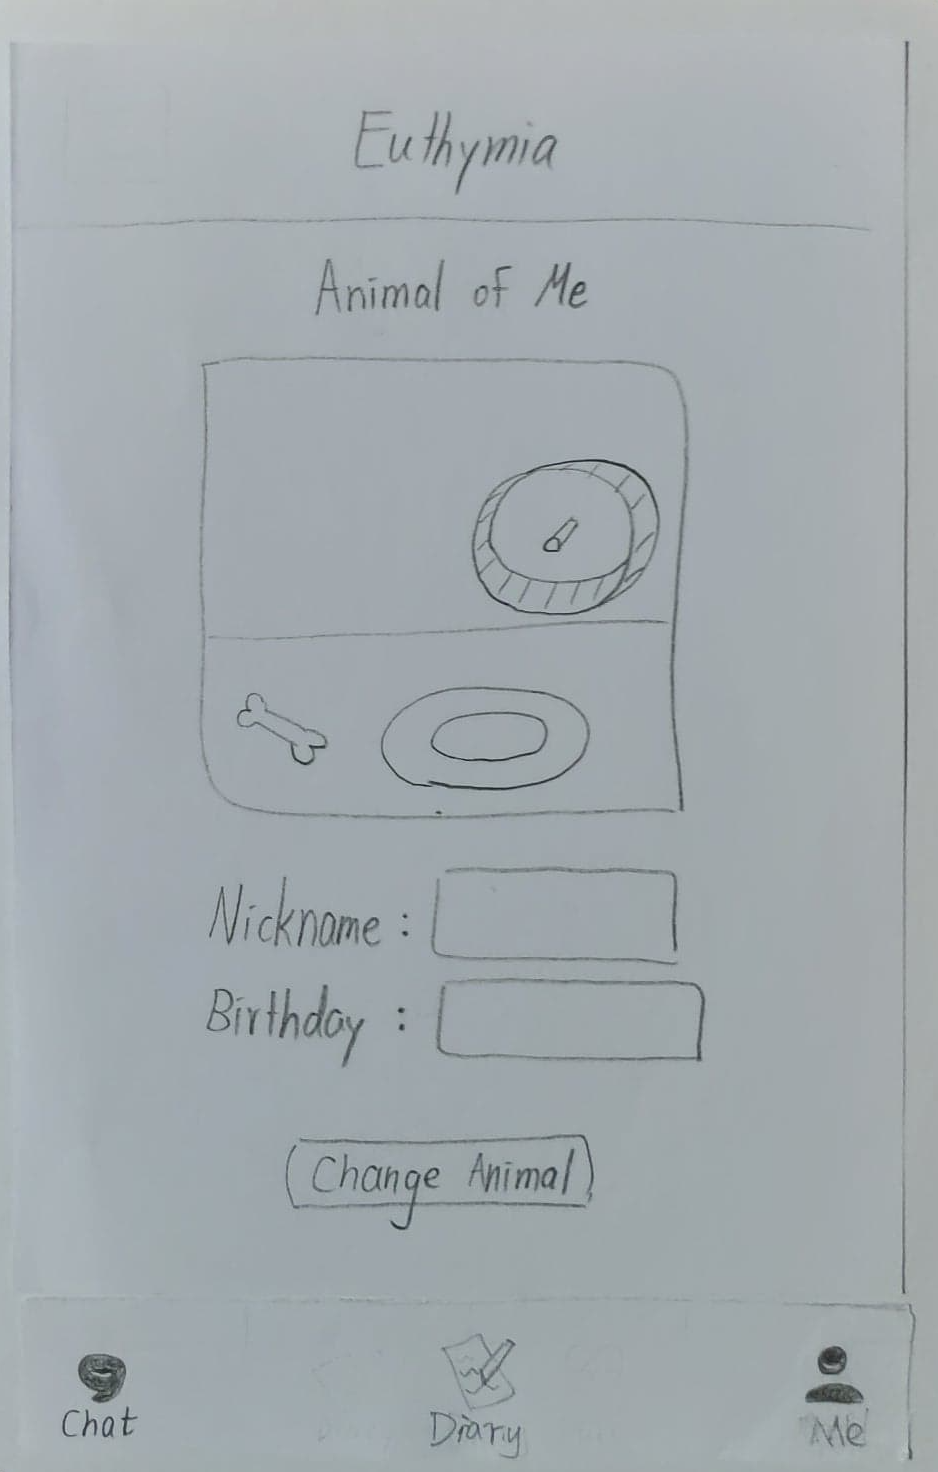 Euthymia
Animal of Me
Nickname :
Birthday :
Change Animal
Chat
Diary
Me